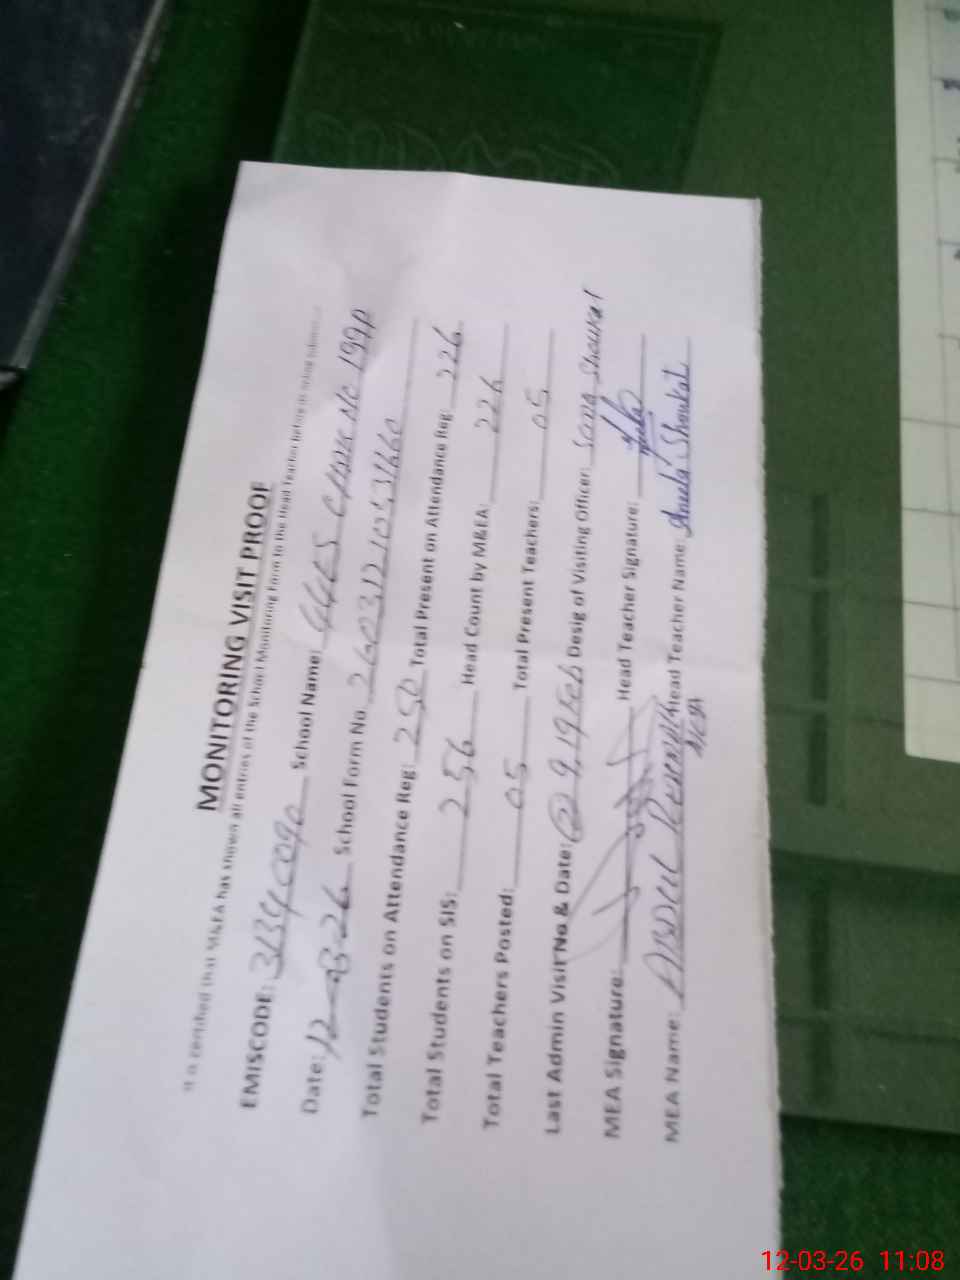 MONITORING VISIT PROOF
It is certified that M&EA has shown all entries of the School Monitoring Form to the Head Teacher before
EMISCODE: School Name: GGES Chak No 199P
Date: 12-03-26 School Form No. 26031210531660
Total Students on Attendance Reg: 250 Total Present on Attendance Reg: 226
Total Students on SIS: 256 Head Count by M&EA: 226
Total Teachers Posted: 05 Total Present Teachers: 05
Last Admin Visit No & Date: 19 Feb Desig of Visiting Officer: Sana Shoukat
MEA Signature: Head Teacher Signature:
MEA Name: ABDUL Head Teacher Name: Aneela Shoukat
12-03-26 11:08